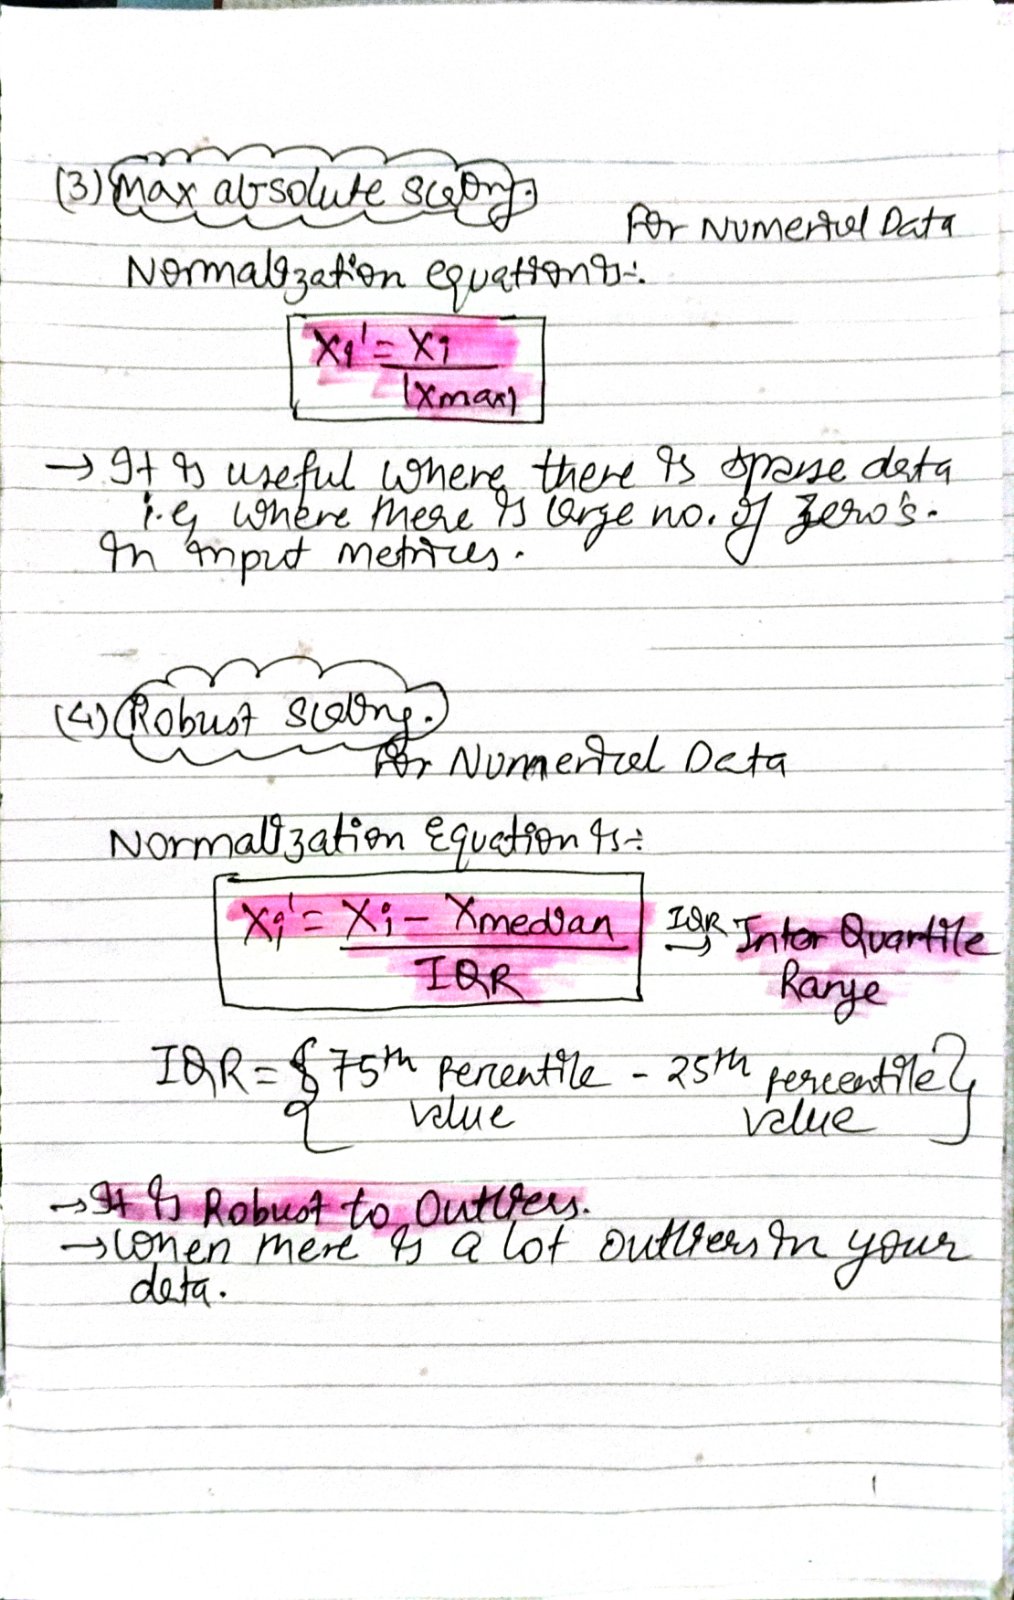 (3) Max absolute scaling.
For Numerical Data
Normalization equation is:-
Xi' = Xi
|Xmax|
→ It is useful where there is sparse data
i.e, where there is large no. of zero's.
In input metrices.
(4) Robust scaling.
For Numerical Data
Normalization Equation is:-
Xi' = Xi - Xmedian
IQR
IQR → Inter Quartile
Range
IQR = { 75th percentile - 25th percentile }
value value
→ It is Robust to Outliers.
→ When there is a lot outliers in your
data.